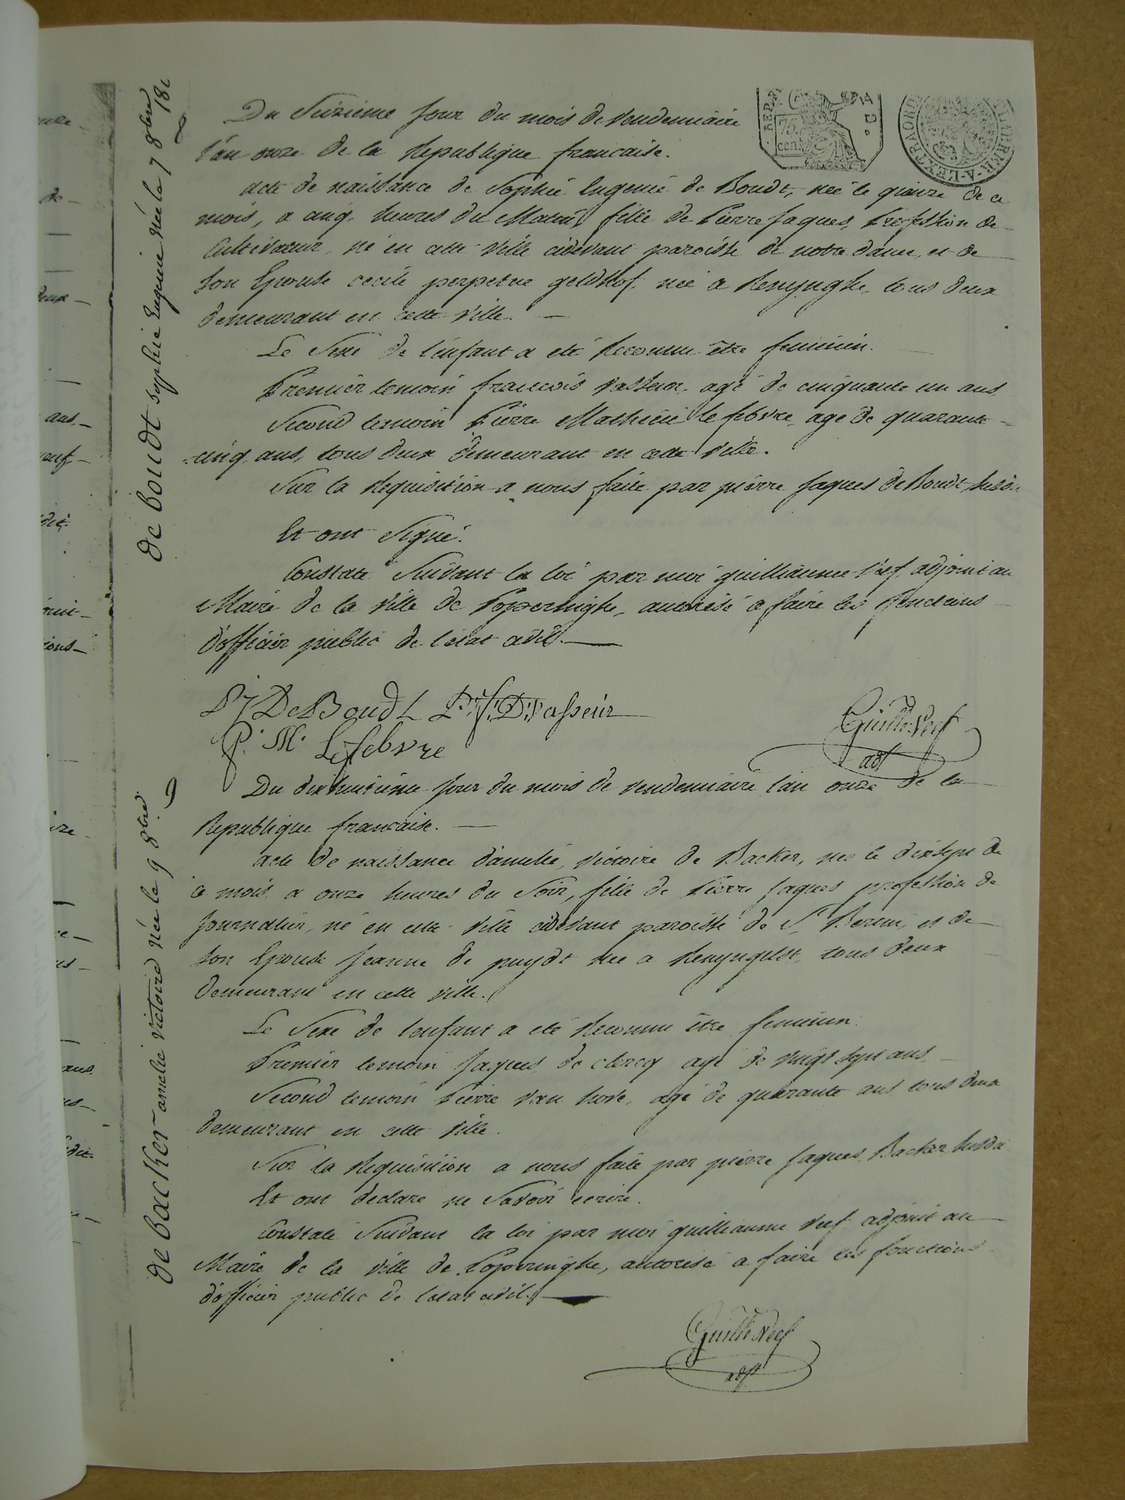 de boudt sophie eugenie née le 7 8bre
Du Seizieme jour du mois de Vendemiaire
l'an onze de la Republique francaise.
acte de naissance de Sophie Eugenie de Boudt, née le quinze de ce
mois, a cinq heures du Matin, fille de Pierre Jaques, Profession de
Cultivateur, né en cette ville cidevant paroisse de notre dame, et de
Son Epouse cecile perpetue geldhof, née a Renynghe tous deux
demeurant en cette Ville. —
Le Sexe de l'enfant a été Reconnu être feminin.
Premier temoin francois Vasseur, agé de cinquante un ans
Second temoin Pierre Mathieu le febvre, age de quarante
cinq ans, tous deux demeurant en cette Ville.
Sur la Requisition a nous faite par pierre Jaques de Boudt
Et ont Signé.
Constaté Suivant la loi par moi guilliaume Neef adjoint au
Maire de la Ville de Poperinghe, autorisé a faire les fonctions
d'officier public de l'etat civil. —
P J De Boudt
P. M. Lefebvre
Guille Neef
adjt
de backer amelie victoire née le 9 8bre
Du dixhuitieme jour du mois de Vendemiaire l'an onze de la
Republique francaise. —
acte de naissance d'amelie victoire de Backer, née le dixsept de
ce mois a onze heures du Soir, fille de Pierre Jaques profession de
Journalier, né en cette Ville cidevant paroisse de St Bertin, et de
Son Epouse Jeanne de puydt née a Renynghelst, tous deux
demeurant en cette Ville.
Le Sexe de l'enfant a été Reconnu être feminin.
Premier temoin Jaques de clercq agé de Vingt Sept ans
Second temoin Pierre Van hove, agé de quarante ans tous deux
demeurant en cette Ville.
Sur la Requisition a nous faite par pierre Jaques Backer
Et ont declaré ne Savoir ecrire.
Constaté Suivant la loi par moi guilliaume Neef adjoint au
Maire de la Ville de Poperinghe, autorisé a faire les fonctions
d'officier public de l'etat civil. —
Guille Neef
adjt